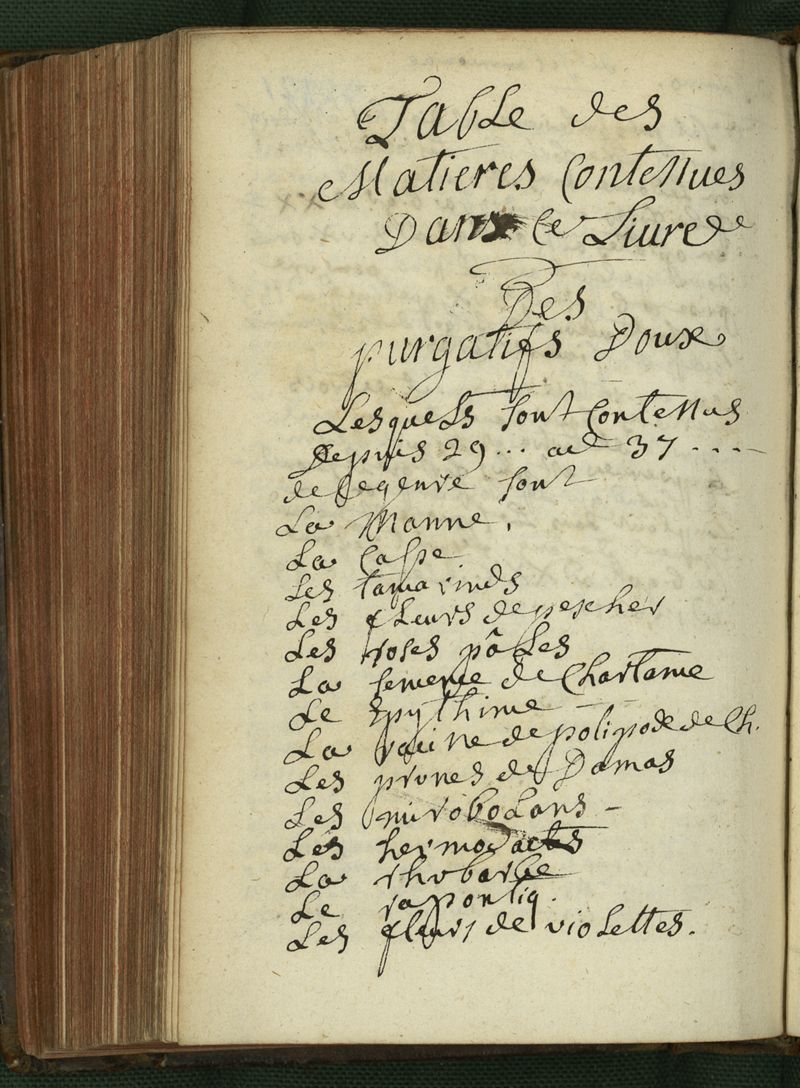 Table des
Matieres Contenues
Dans Ce Liure de
Des
purgatifs Doux
Lesquels sont Contenus
Depuis 29 ... ad 37 ....
de ce genre sont
La Manne,
La Casse
Les tamarinds
Les fleurs de pescher
Les roses pâles
La semence de Chartame
Le Epythime - -
La racine de polipode de Ch.
Les prunes de Damas
Les mirobolans -
Les hermodactes
La rhubarbe
Le rapontiq.
Les fleurs de violettes.